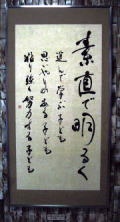 素直で明るく
進んで学ぶ子ども
思いやりのある子ども
粘り強く努力する子ども